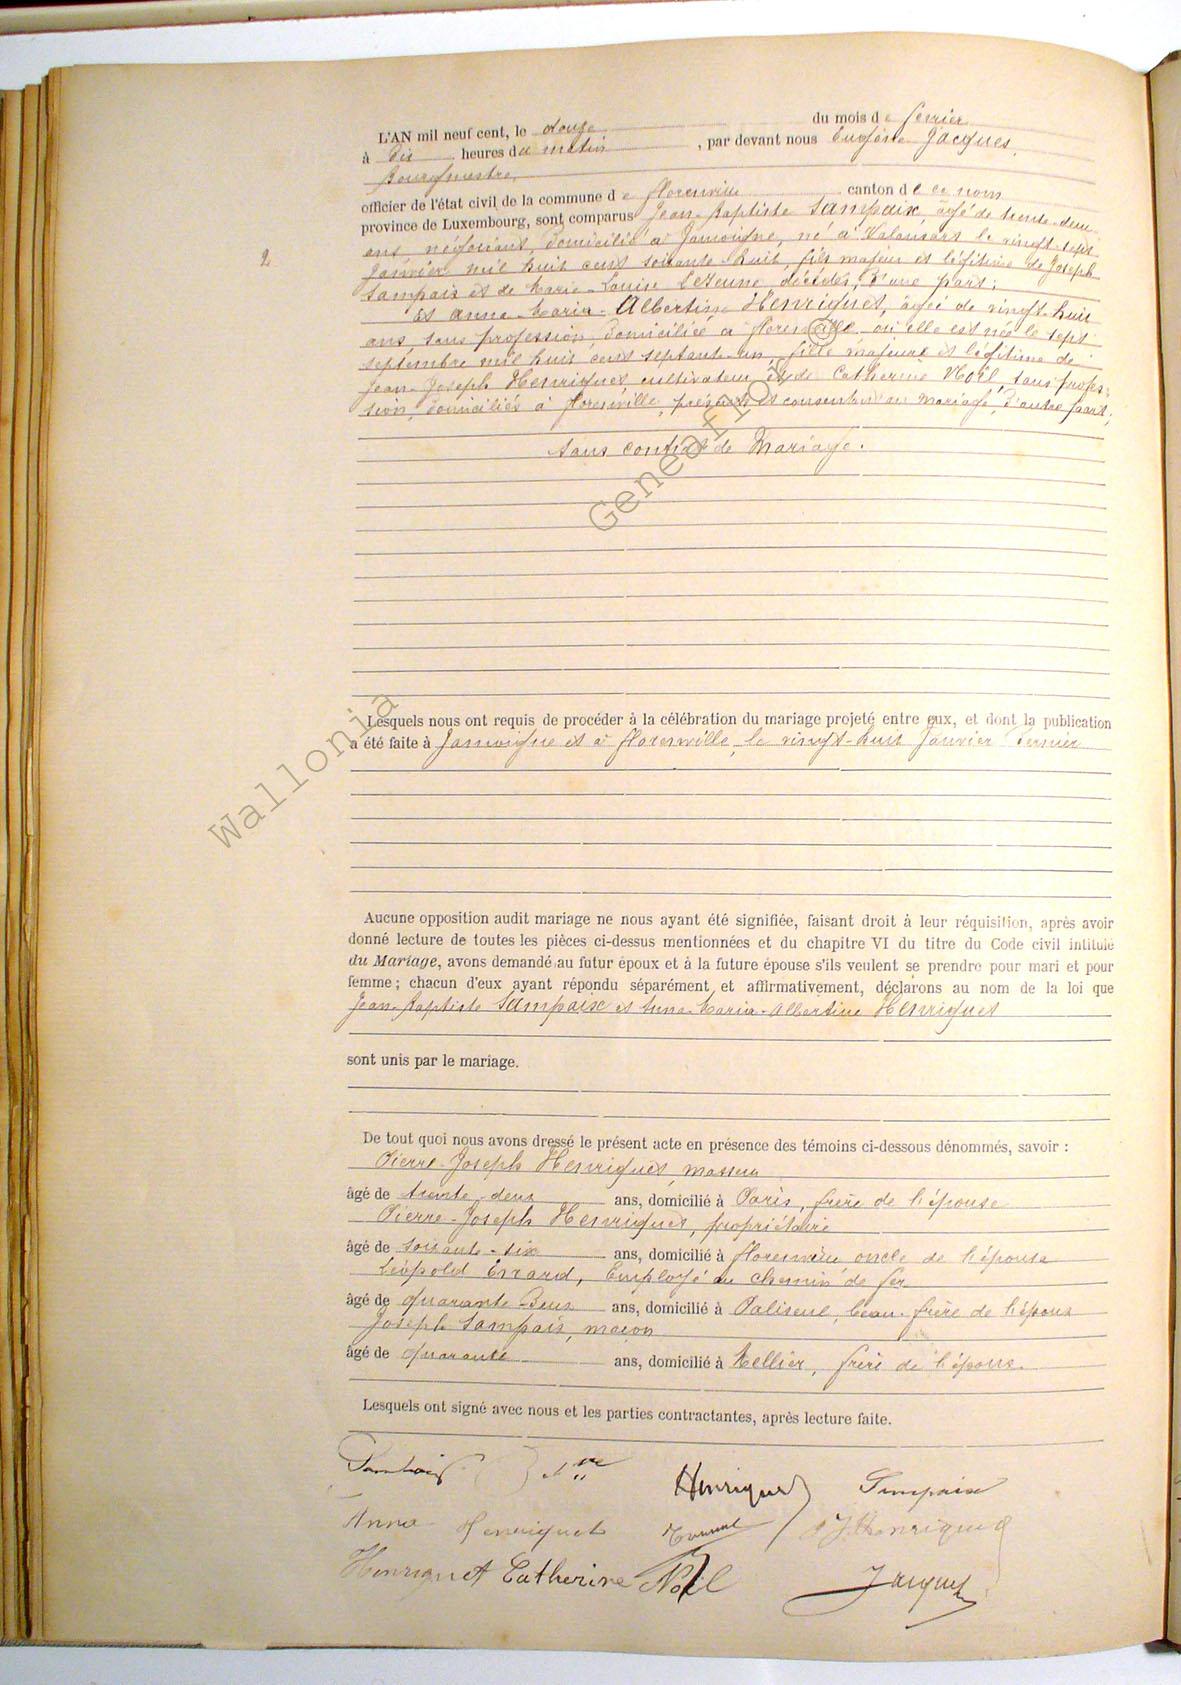 L'AN mil neuf cent, le douze du mois de février
à dix heures du matin, par devant nous Eugène Jacques,
Bourgmestre,
officier de l'état civil de la commune de Florenville canton de ce nom
province de Luxembourg, sont comparus Jean-Baptiste Sampaix, âgé de trente-deux
ans, négociant, domicilié à Jamoigne, né à Valansart le vingt-sept
2
Janvier mil huit cent soixante-huit, fils majeur et légitime de Joseph
Sampaix et de Marie-Louise Lejeune, décédés, d'une part;
Et Anna-Maria-Albertine Henriquet, âgée de vingt-huit
ans, sans profession, domiciliée à Florenville où elle est née le sept
septembre mil huit cent septante-un, fille majeure et légitime de
Jean-Joseph Henriquet, cultivateur et de Catherine Noël, sans profes-
sion, domiciliés à Florenville, présents et consentant au mariage, d'autre part;
Sans contrat de Mariage.
Wallonia Geneafron ©
Lesquels nous ont requis de procéder à la célébration du mariage projeté entre eux, et dont la publication
a été faite à Jamoigne et à Florenville, le vingt-huit Janvier dernier
Aucune opposition audit mariage ne nous ayant été signifiée, faisant droit à leur réquisition, après avoir
donné lecture de toutes les pièces ci-dessus mentionnées et du chapitre VI du titre du Code civil intitulé
du Mariage, avons demandé au futur époux et à la future épouse s'ils veulent se prendre pour mari et pour
femme; chacun d'eux ayant répondu séparément et affirmativement, déclarons au nom de la loi que
Jean-Baptiste Sampaix et Anna-Maria-Albertine Henriquet
sont unis par le mariage.
De tout quoi nous avons dressé le présent acte en présence des témoins ci-dessous dénommés, savoir :
Pierre-Joseph Henriquet, masseur
âgé de trente-deux ans, domicilié à Paris, frère de l'épouse
Pierre-Joseph Henriquet, propriétaire
âgé de soixante-six ans, domicilié à Florenville oncle de l'épouse
Léopold Evrard, Employé au chemin de fer
âgé de quarante-deux ans, domicilié à Paliseul, beau-frère de l'époux
Joseph Sampaix, maçon
âgé de quarante ans, domicilié à Mellier, frère de l'époux.
Lesquels ont signé avec nous et les parties contractantes, après lecture faite.
Sampaix Henriquet Sampaix
Anna Henriquet P J Henriquet
Henriquet Catherine Noël Jacques